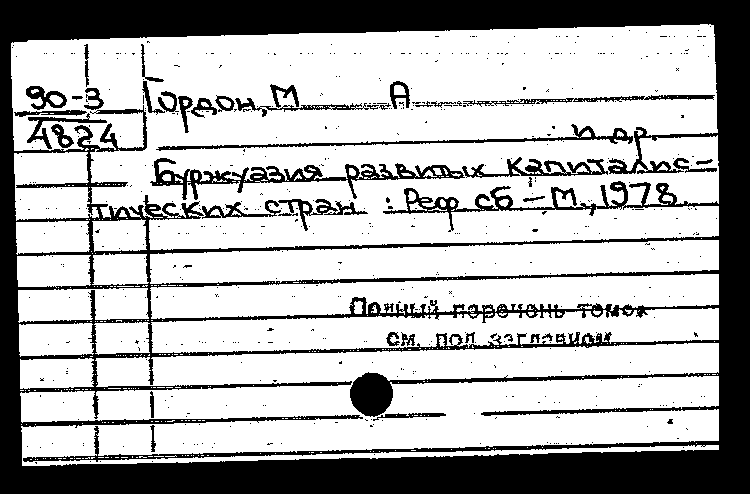 90-3
4824
Гордон, М А
и др.
Буржуазия развитых капиталис-
тических стран : Реф сб - М., 1978.
Полный перечень томов
см. под заглавием